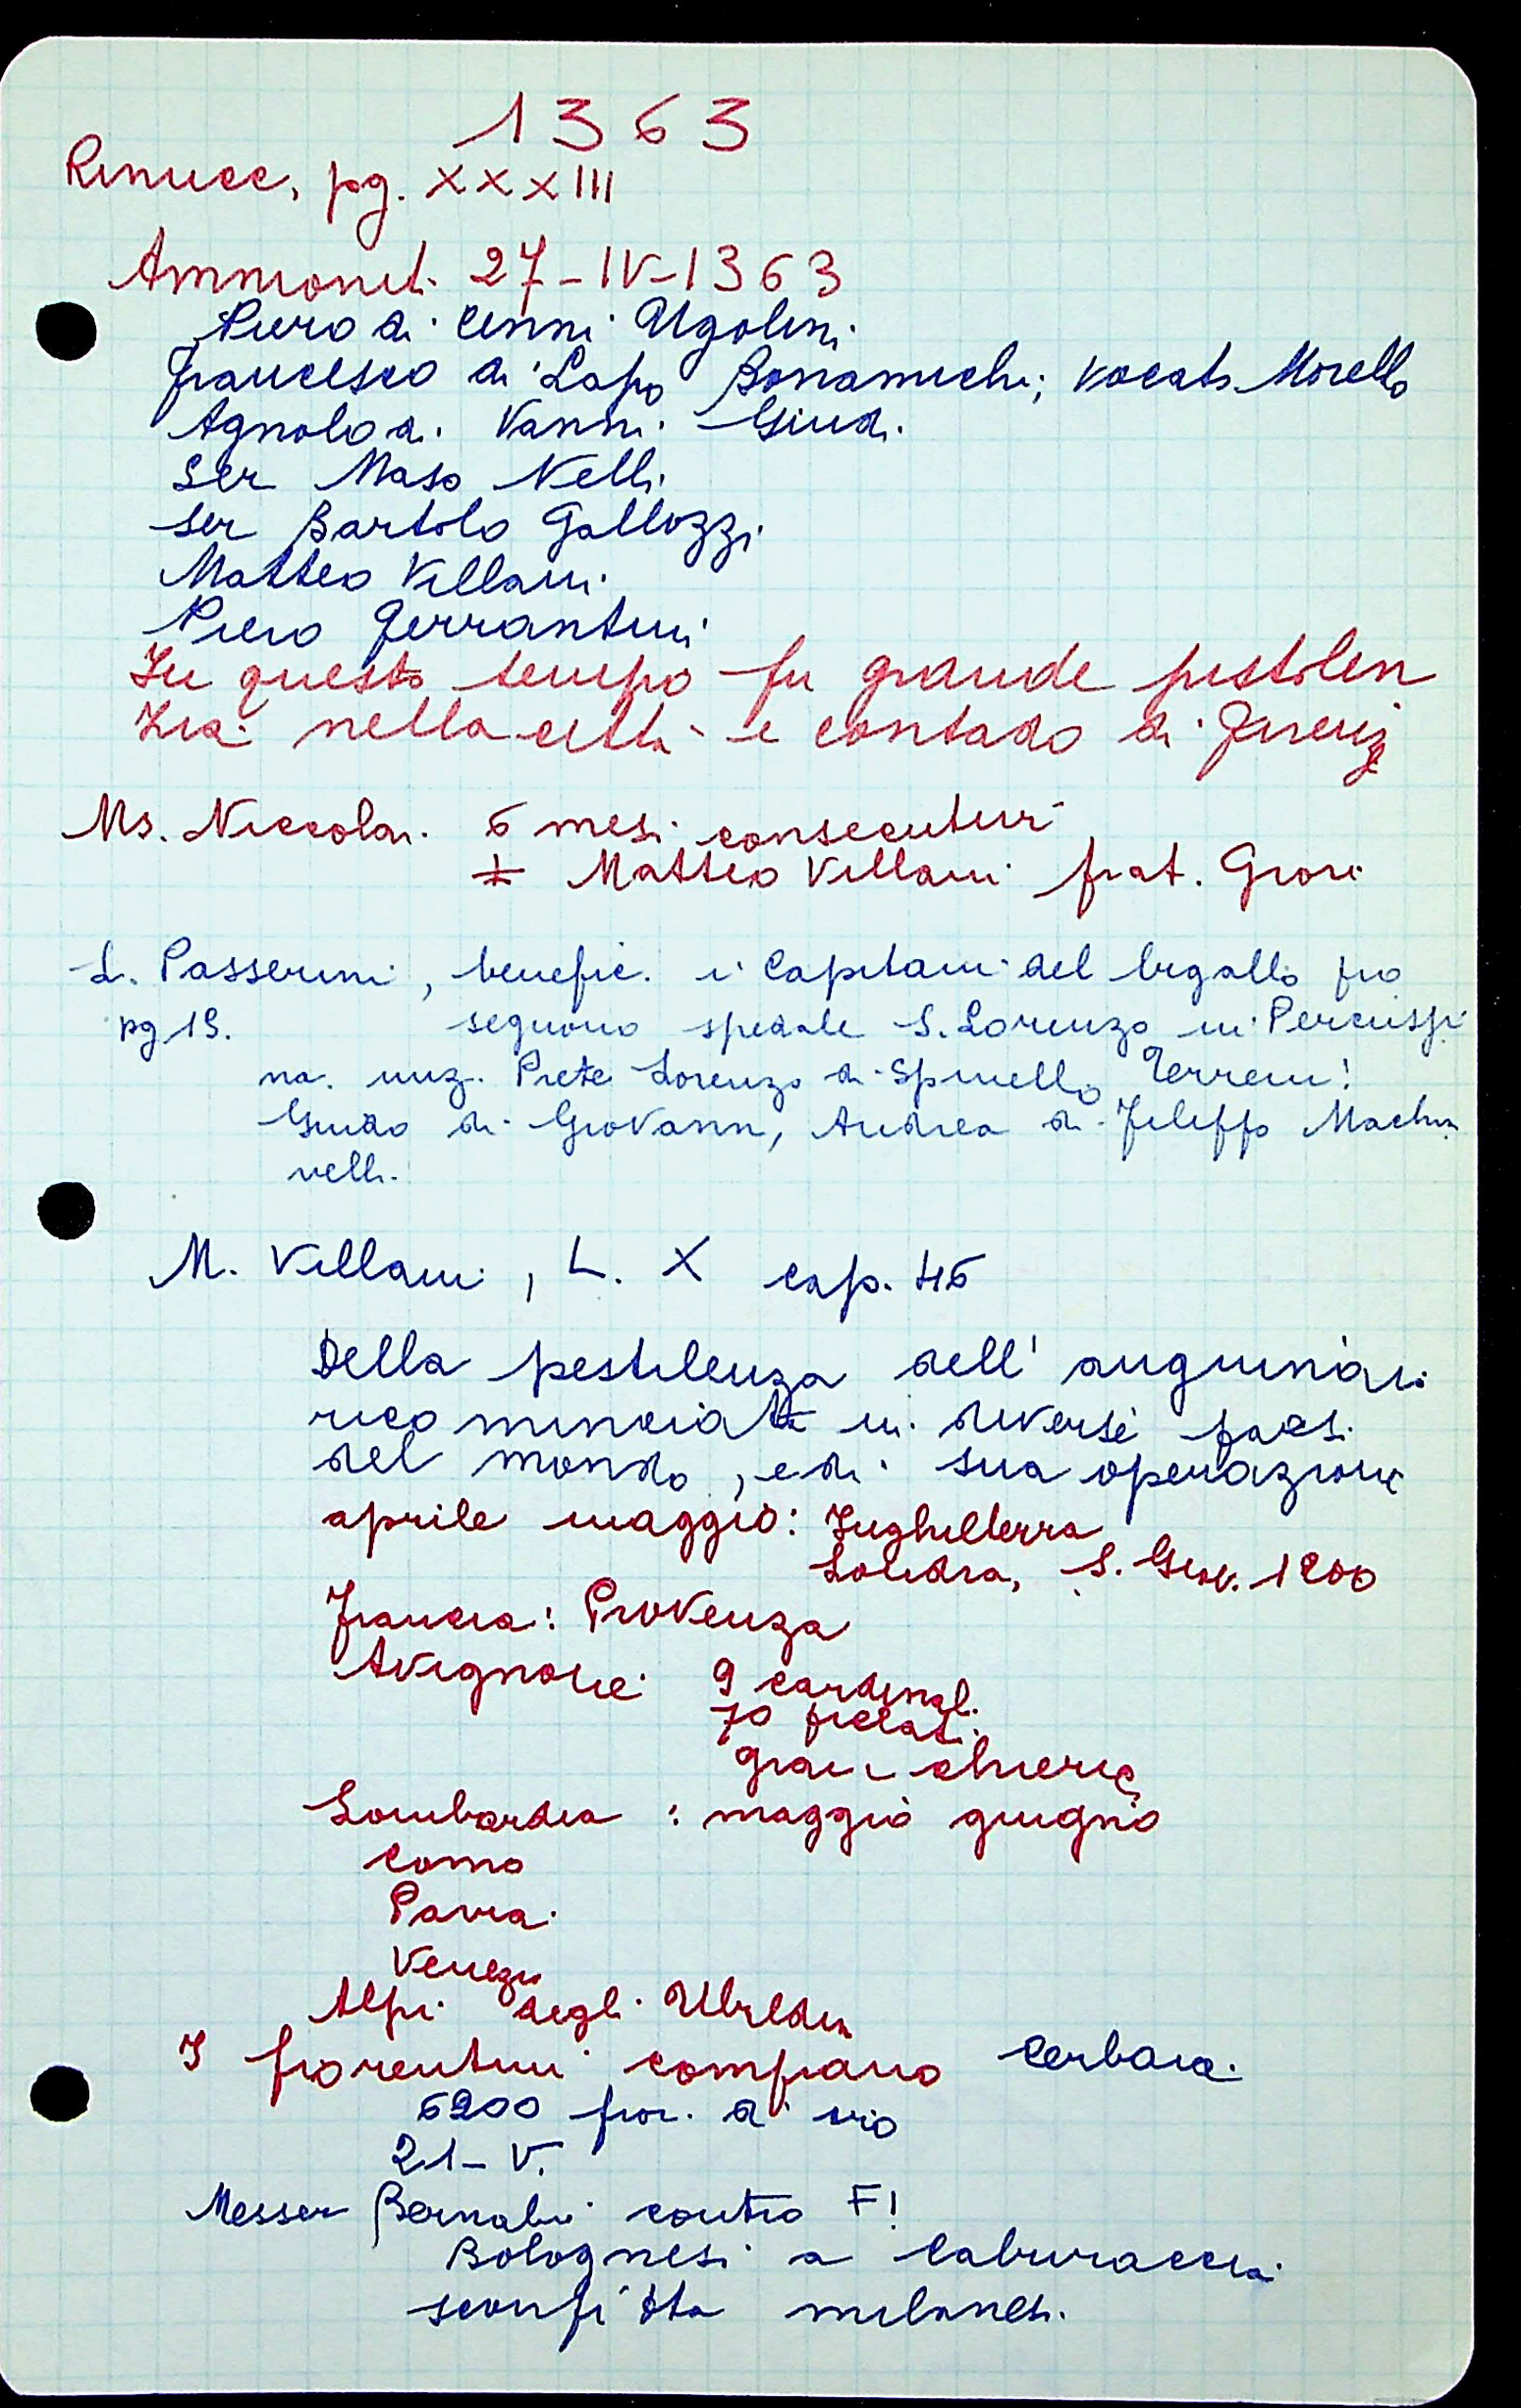 1363
Rinucc, pg. XXXIII
Ammonit. 27-IV-1363
Piero di Cenni Ugolini
Francesco di Lapo Bonamichi, vocato Morello
Agnolo di Vanni Giudi
Ser Maso Nelli
ser Bartolo Gallozzi
Matteo Villani
Piero Ferrantini
In questo tempo fu grande pistolen
zia nella città e contado di Firenz
Ms. Niccolai. 6 mesi consecutivi
+ Matteo Villani frat. Giov.
L. Passerini, benefic. i Capitani del bigallo pro
pg 19. seguono spedale S. Lorenzo in Percussi
na. Prete Lorenzo di Spinello Terreni!
Guido di Giovanni, Andrea di Filippo Machia
velli.
M. Villani, L. X cap. 46
Della pestilenza dell' anguinaia
ricominciata in diversi paesi
del mondo, e di sua operazione
aprile maggio: Inghilterra
Londra, S. Giov. 1200
Francia: Provenza
Avignone 9 cardinal.
70 prelati
gran chieric
Lombardia: maggio giugno
Como
Pavia
Venezia
Alpi degli Ubaldin
I fiorentini comprano Cerbaia
6200 fior. d'oro
21-V.
Messer Bernabò contro F!
Bolognesi a
sconfitta milanesi.